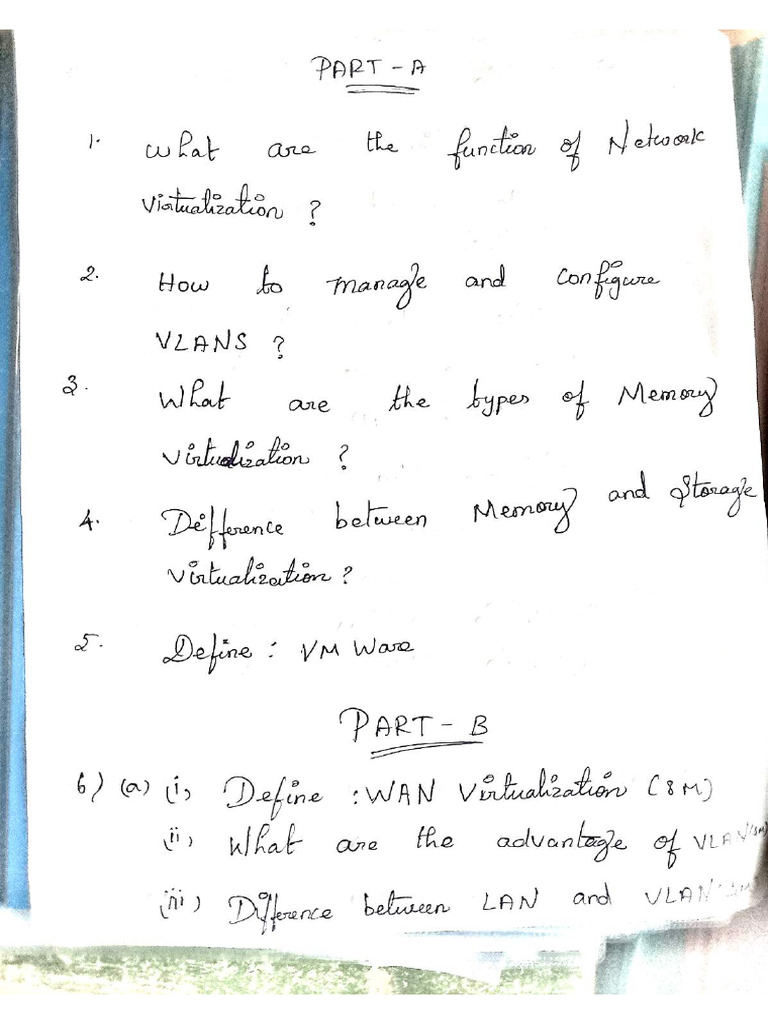 PART - A
1. What are the function of Network
Virtualization ?
2. How to manage and configure
VLANS ?
3. What are the types of Memory
Virtualization ?
4. Difference between Memory and Storage
Virtualization ?
5. Define : VM Ware
PART - B
6) (a) (i) Define : WAN Virtualization (8M)
(ii) What are the advantage of VLAN
(iii) Difference between LAN and VLAN